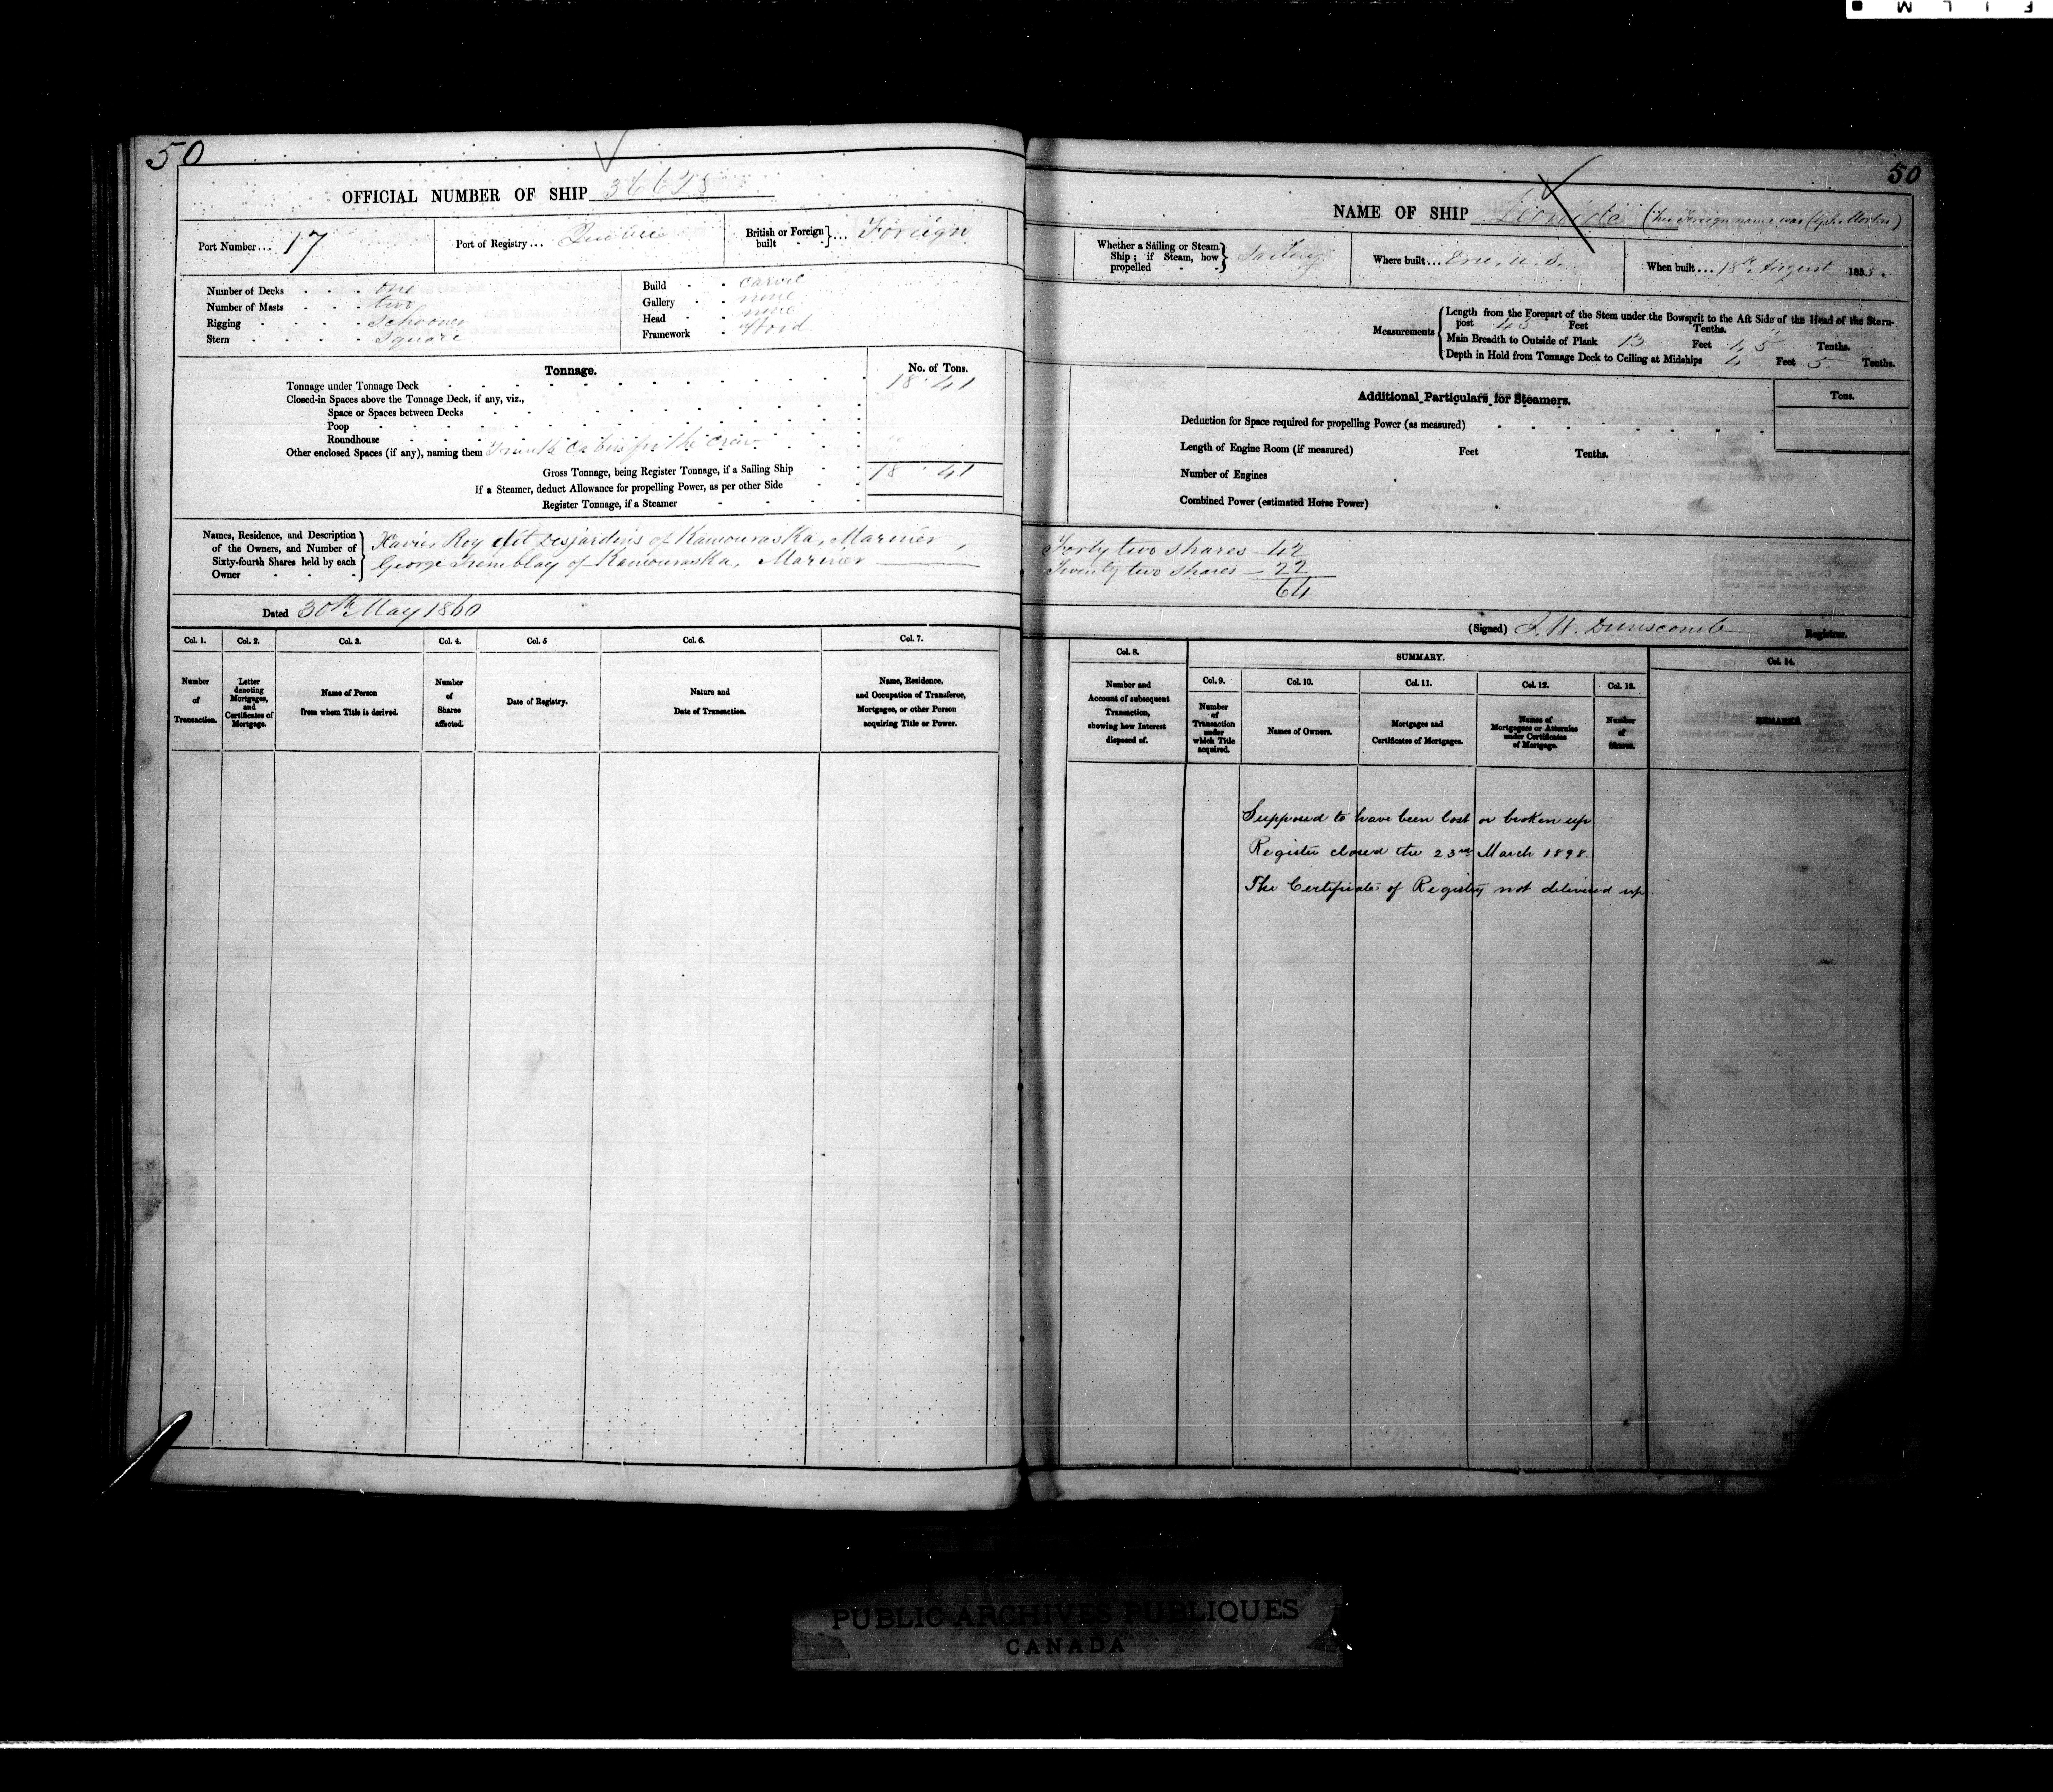 F I L M
50
OFFICIAL NUMBER OF SHIP
Port Number... 17
Port of Registry... Quebec
British or Foreign built } ... Foreign
Number of Decks one
Number of Masts two
Rigging Schooner
Stern Square
Build Carvel
Gallery none
Head none
Framework Wood
Tonnage.
No. of Tons.
Tonnage under Tonnage Deck 18.41
Closed-in Spaces above the Tonnage Deck, if any, viz.,
Space or Spaces between Decks
Poop
Roundhouse
Other enclosed Spaces (if any), naming them Trunk Cabin for the crew
Gross Tonnage, being Register Tonnage, if a Sailing Ship 18.41
If a Steamer, deduct Allowance for propelling Power, as per other Side
Register Tonnage, if a Steamer
Names, Residence, and Description of the Owners, and Number of Sixty-fourth Shares held by each Owner
Xavier Roy dit Desjardins of Kamouraska, Mariner,
George Tremblay of Kamouraska, Mariner
Dated 30th May 1860
Col. 1. Col. 2. Col. 3. Col. 4. Col. 5 Col. 6. Col. 7.
Number of Transaction.
Letter denoting Mortgages, and Certificates of Mortgage.
Name of Person from whom Title is derived.
Number of Shares affected.
Date of Registry.
Nature and Date of Transaction.
Name, Residence, and Occupation of Transferee, Mortgagee, or other Person acquiring Title or Power.
50
NAME OF SHIP Leonide (her Foreign name was Morton)
Whether a Sailing or Steam Ship; if Steam, how propelled } Sailing
Where built... Erie, U.S.
When built... 18th August 1855.
Measurements
Length from the Forepart of the Stem under the Bowsprit to the Aft Side of the Head of the Stern-
post Feet Tenths.
Main Breadth to Outside of Plank 13 Feet Tenths.
Depth in Hold from Tonnage Deck to Ceiling at Midships 4 Feet 5 Tenths.
Additional Particulars for Steamers.
Tons.
Deduction for Space required for propelling Power (as measured)
Length of Engine Room (if measured) Feet Tenths.
Number of Engines
Combined Power (estimated Horse Power)
Forty two shares - 42
Twenty two shares - 22
64
(Signed) J. W. Dunscomb Registrar.
Col. 8. SUMMARY. Col. 14.
Col. 9. Col. 10. Col. 11. Col. 12. Col. 13.
Number and Account of subsequent Transaction, showing how Interest disposed of.
Number of Transaction under which Title acquired.
Names of Owners.
Mortgages and Certificates of Mortgages.
Names of Mortgagees or Attornies under Certificates of Mortgage.
Number of Shares.
REMARKS
Supposed to have been lost or broken up
Register closed the 23rd March 1898.
The Certificate of Registry not delivered up.
PUBLIC ARCHIVES PUBLIQUES
CANADA